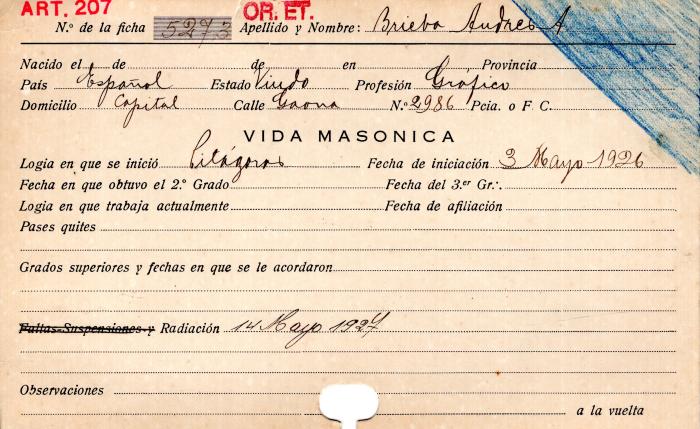 ART. 207 OR. ET.
N.º de la ficha 5273 Apellido y Nombre: Brieba Andrés A
Nacido el de de en Provincia
País Español Estado Viudo Profesión Gráfico
Domicilio Capital Calle Gaona N.º 2986 Pcia. o F C.
VIDA MASONICA
Logia en que se inició Pitágoras Fecha de iniciación 3 Mayo 1926
Fecha en que obtuvo el 2.º Grado Fecha del 3.er Gr∴
Logia en que trabaja actualmente Fecha de afiliación
Pases quites
Grados superiores y fechas en que se le acordaron
Faltas-Suspensiones-y Radiación 14 Mayo 1927
Observaciones
a la vuelta